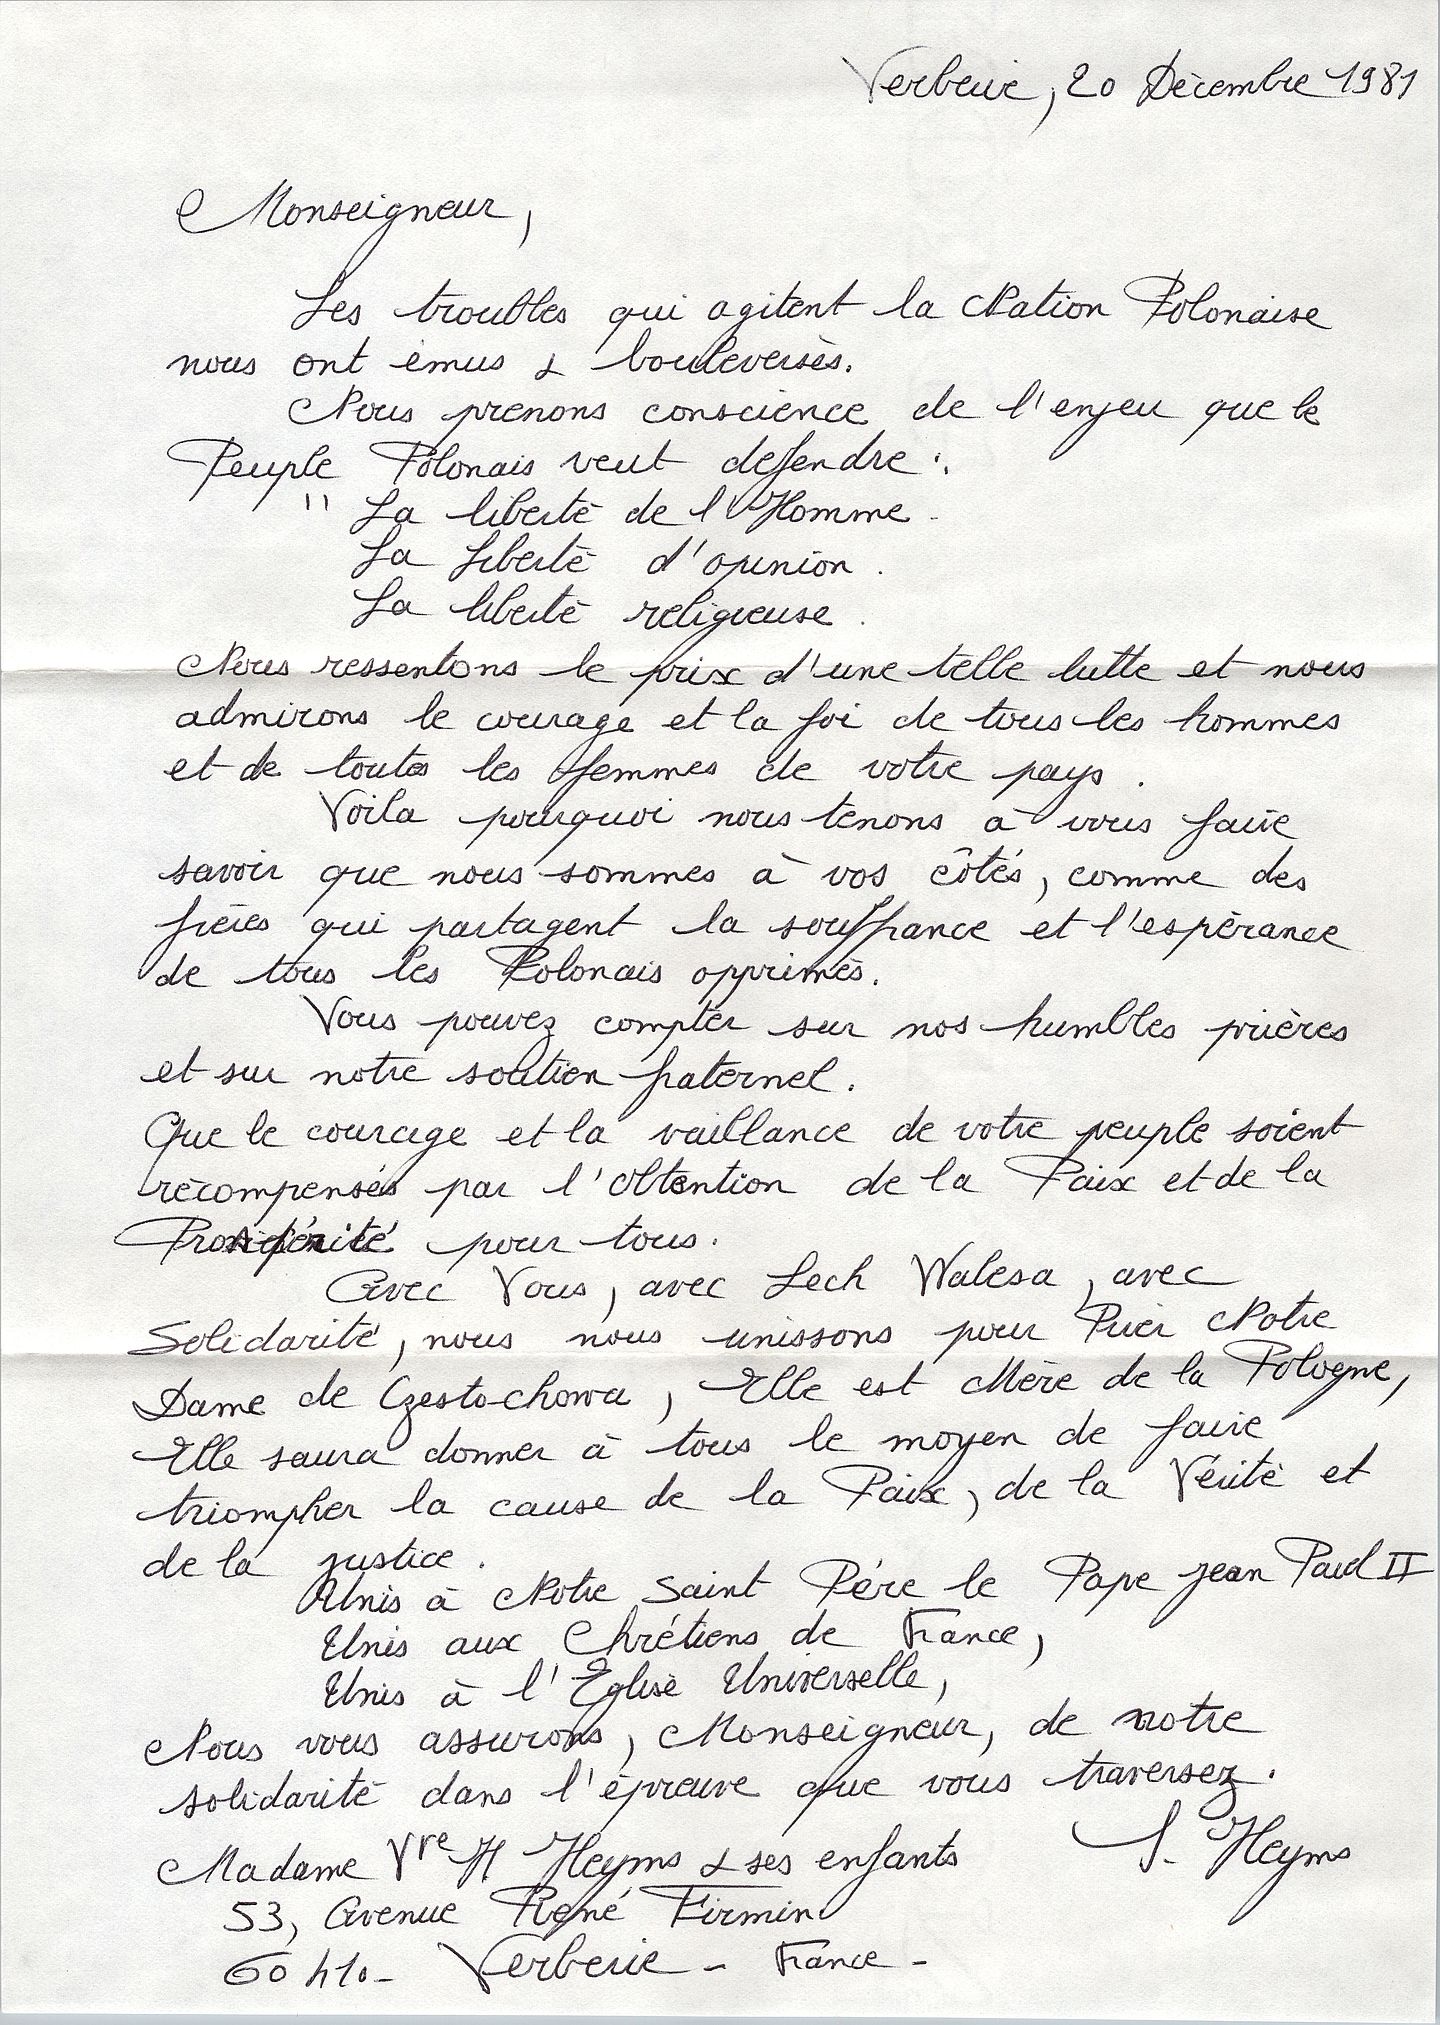 Verberie, 20 Décembre 1981
Monseigneur,
Les troubles qui agitent la Nation Polonaise
nous ont émus & bouleversés.
Nous prenons conscience de l'enjeu que le
Peuple Polonais veut defendre :
" La liberté de l'Homme.
La liberté d'opinion.
La liberté religieuse.
Nous ressentons le prix d'une telle lutte et nous
admirons le courage et la foi de tous les hommes
et de toutes les femmes de votre pays.
Voila pourquoi nous tenons à vous faire
savoir que nous sommes à vos côtés, comme des
frères qui partagent la souffrance et l'espérance
de tous les Polonais opprimés.
Vous pouvez compter sur nos humbles prières
et sur notre soutien fraternel.
Que le courage et la vaillance de votre peuple soient
récompensés par l'Obtention de la Paix et de la
Prospérité pour tous.
Avec Vous, avec Lech Walesa, avec
Solidarité, nous nous unissons pour Prier Notre
Dame de Czesto-chowa, Elle est Mère de la Pologne,
Elle saura donner à tous le moyen de faire
triompher la cause de la Paix, de la Vérité et
de la justice.
Unis à Notre Saint Père le Pape jean Paul II
Unis aux Chrétiens de France,
Unis à l'Eglise Universelle,
Nous vous assurons, Monseigneur, de notre
solidarité dans l'épreuve que vous traversez.
Madame Vve H Heyms & ses enfants
S. Heyms
53, Avenue René Firmin
60410 - Verberie - France -